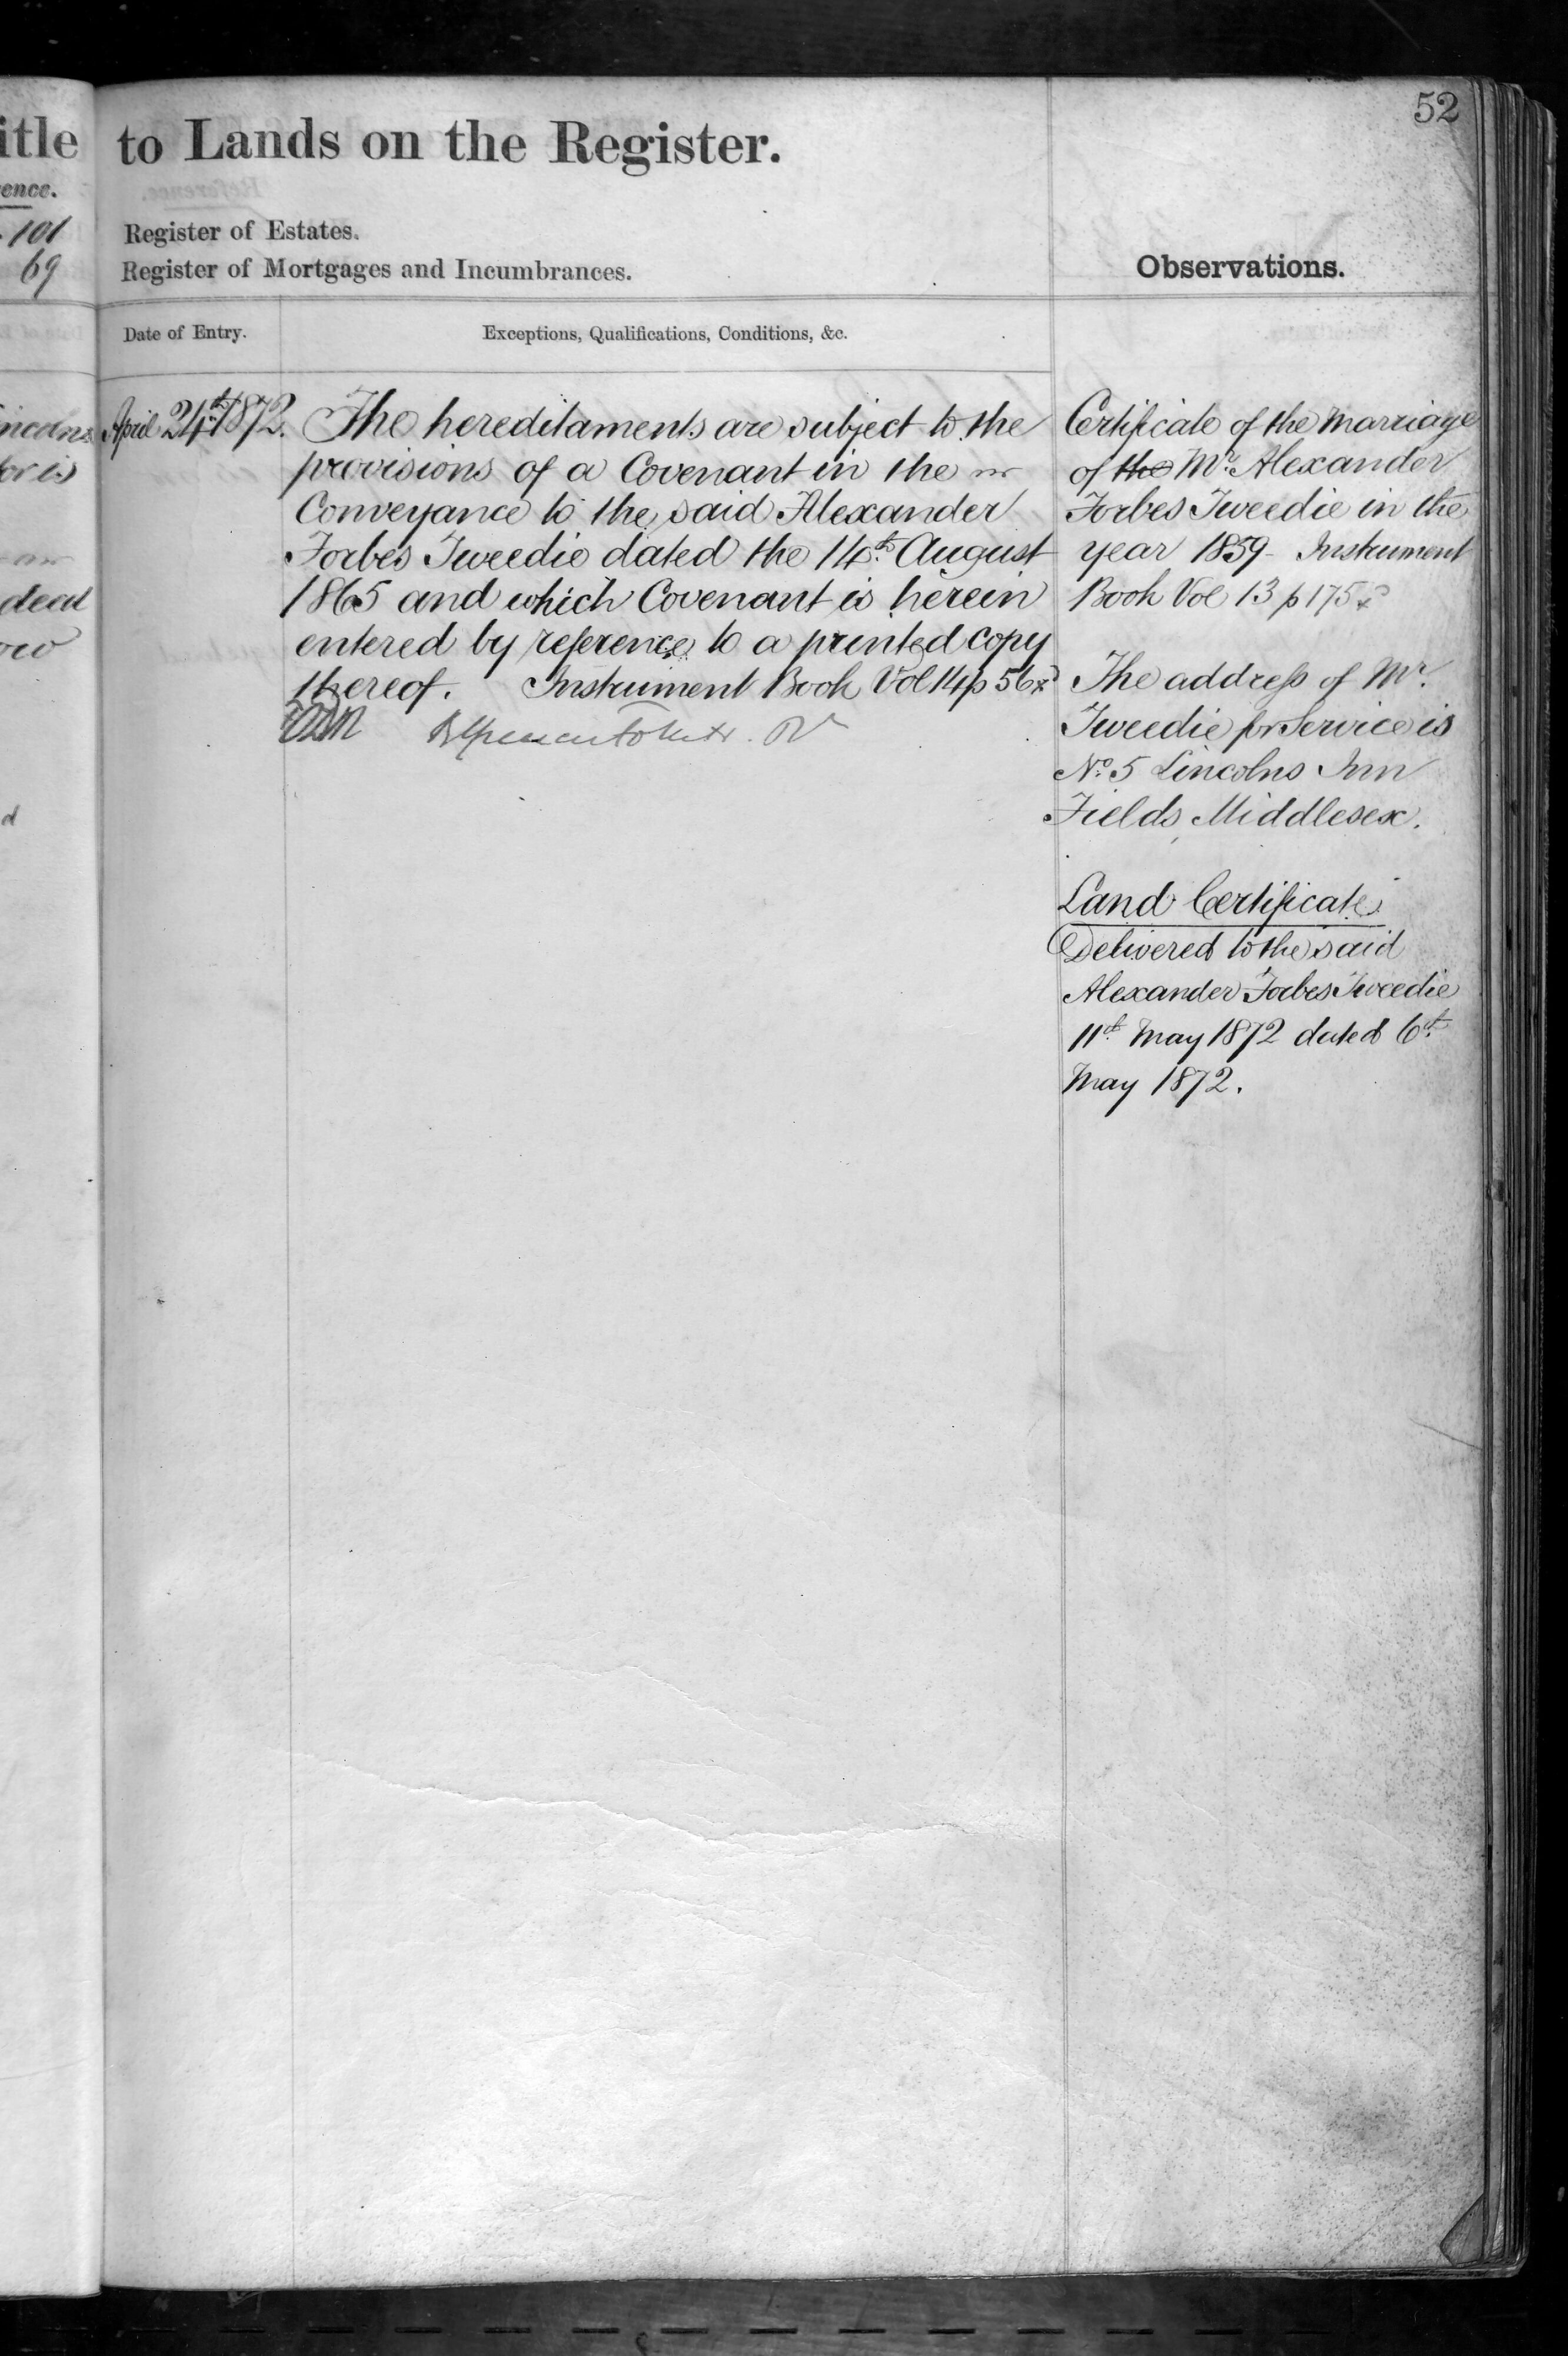 52
itle to Lands on the Register.
ence.
101 Register of Estates.
69 Register of Mortgages and Incumbrances.
Observations.
Date of Entry.
Exceptions, Qualifications, Conditions, &c.
April 24th 1872.
The hereditaments are subject to the
provisions of a Covenant in the
Conveyance to the said Alexander
Forbes Tweedie dated the 14th August
1865 and which Covenant is herein
entered by reference to a printed copy
thereof. Instrument Book Vol 14 p 56
Certificate of the Marriage
of the Mr. Alexander
Forbes Tweedie in the
year 1859 - Instrument
Book Vol 13 p 175
The address of Mr.
Tweedie for Service is
No. 5 Lincolns Inn
Fields, Middlesex.
Land Certificate
Delivered to the said
Alexander Forbes Tweedie
11th May 1872 dated 6th
May 1872.